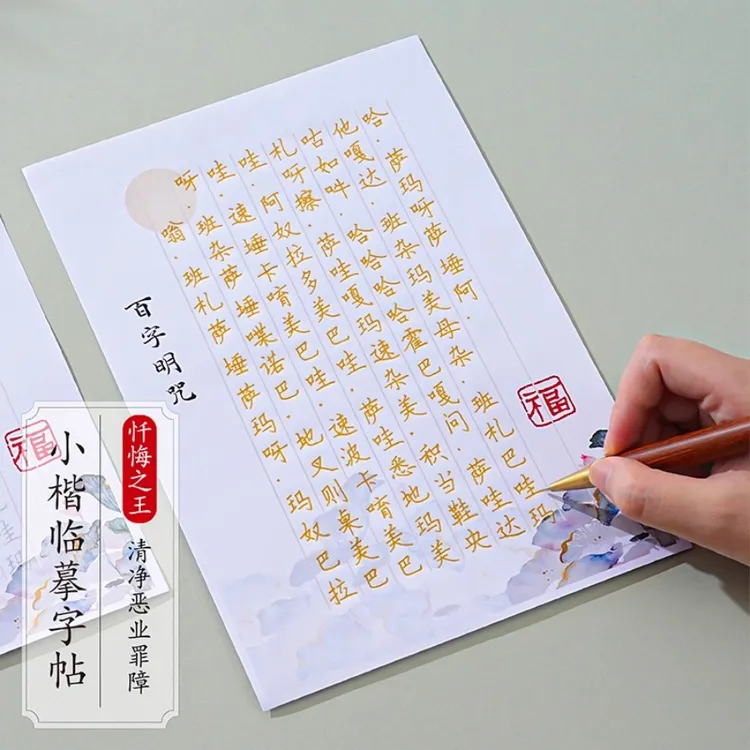 百字明咒
嗡·班札萨埵萨玛呀·玛奴巴拉
呀·班杂萨埵喋诺巴·地叉则桌美巴
哇·速埵卡唷美巴哇·速波卡唷美巴
哇·阿奴拉多美巴哇·萨哇悉地玛美
札呀擦·萨哇嘎玛速杂美·积当鞋央
咕如吽·哈哈哈哈霍巴嘎问·萨哇达
他嘎达·班杂玛美母杂·班札巴哇玛
哈·萨玛呀萨埵阿·
福
福
忏悔之王
清净恶业罪障
小楷临摹字帖